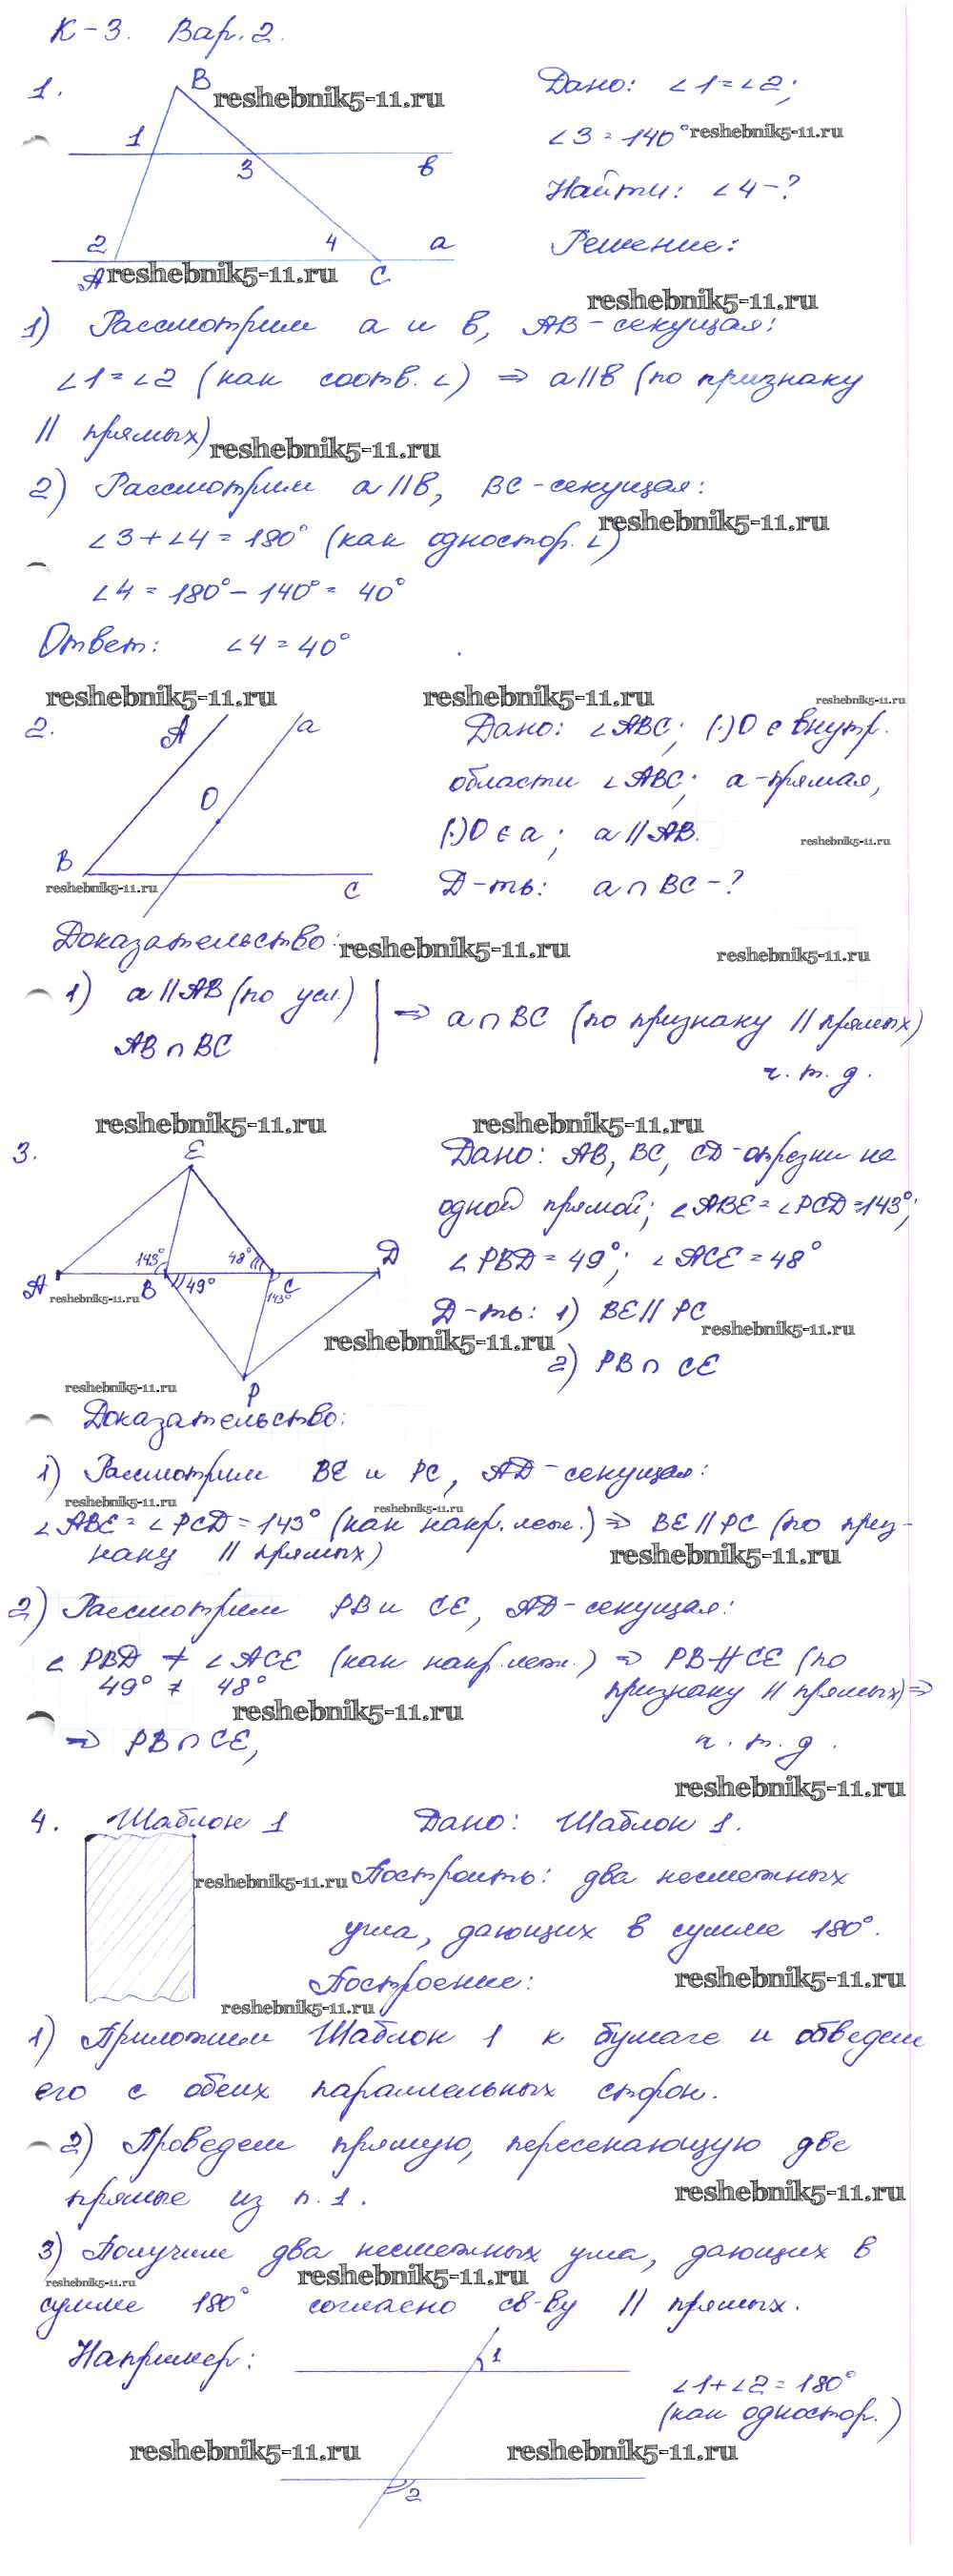 К-3. Вар. 2.
1.
B
reshebnik5-11.ru
Дано: ∠1=∠2;
1
3
в
∠3 = 140°
reshebnik5-11.ru
Найти: ∠4-?
2
4
a
Решение:
A
reshebnik5-11.ru
C
reshebnik5-11.ru
1) Рассмотрим a и в, AB-секущая:
∠1=∠2 (как соотв. ∠) ⇒ a||в (по признаку
|| прямых)
reshebnik5-11.ru
2) Рассмотрим a||в, BC-секущая:
reshebnik5-11.ru
∠3+∠4=180° (как одностор. ∠)
∠4 = 180° - 140° = 40°
Ответ: ∠4 = 40°
reshebnik5-11.ru reshebnik5-11.ru reshebnik5-11.ru
2.
A
a
O
B
C
reshebnik5-11.ru
Дано: ∠ABC; (·)O ∈ внутр.
области ∠ABC; a-прямая,
(·)O ∈ a; a||AB.
reshebnik5-11.ru
Д-ть: a∩BC-?
Доказательство:
reshebnik5-11.ru reshebnik5-11.ru
1) a||AB (по усл.)
AB∩BC
⇒ a∩BC (по признаку || прямых)
ч.т.д.
reshebnik5-11.ru reshebnik5-11.ru
3.
E
143°
48°
D
A
B
49°
C
143°
P
reshebnik5-11.ru
Дано: AB, BC, CD-отрезки на
одной прямой; ∠ABE=∠PCD=143°;
∠PBD = 49°; ∠ACE = 48°
Д-ть: 1) BE||PC
reshebnik5-11.ru reshebnik5-11.ru
2) PB∩CE
reshebnik5-11.ru
Доказательство:
1) Рассмотрим BE и PC, AD-секущая:
reshebnik5-11.ru reshebnik5-11.ru
∠ABE=∠PCD=143° (как накр. леж.) ⇒ BE||PC (по приз-
наку || прямых)
reshebnik5-11.ru
2) Рассмотрим PB и CE, AD-секущая:
∠PBD ≠ ∠ACE (как накр. леж.) ⇒ PB∦CE (по
49° ≠ 48°
признаку || прямых) ⇒
reshebnik5-11.ru
⇒ PB∩CE,
ч.т.д.
reshebnik5-11.ru
4. Шаблон 1
Дано: Шаблон 1.
reshebnik5-11.ru
Построить: два несмежных
угла, дающих в сумме 180°.
Построение:
reshebnik5-11.ru
reshebnik5-11.ru
1) Приложим Шаблон 1 к бумаге и обведем
его с обеих параллельных сторон.
2) Проведем прямую, пересекающую две
прямые из п. 1.
reshebnik5-11.ru
3) Получим два несмежных угла, дающих в
reshebnik5-11.ru reshebnik5-11.ru
сумме 180° согласно св-ву || прямых.
Например:
1
∠1+∠2=180°
(как одностор.)
reshebnik5-11.ru reshebnik5-11.ru
2